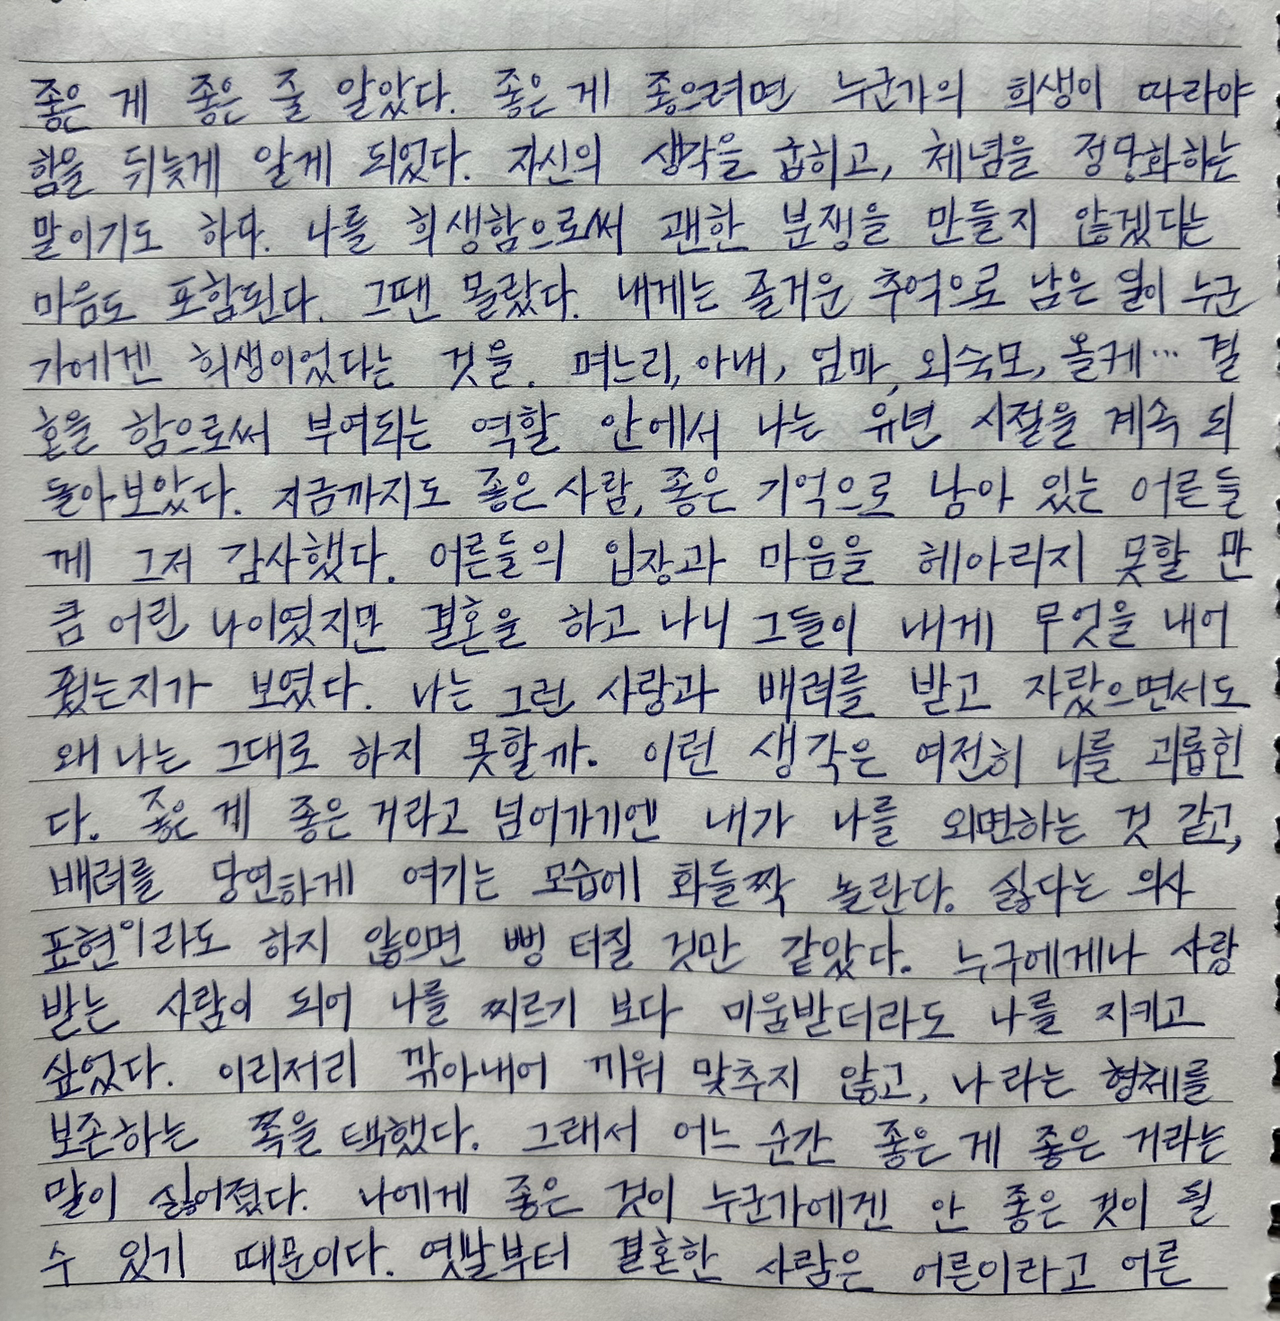 좋은 게 좋은 줄 알았다. 좋은 게 좋으려면 누군가의 희생이 따라야
함을 뒤늦게 알게 되었다. 자신의 생각을 굽히고, 체념을 정당화하는
말이기도 하다. 나를 희생함으로써 괜한 분쟁을 만들지 않겠다는
마음도 포함된다. 그땐 몰랐다. 내게는 즐거운 추억으로 남은 일이 누군
가에겐 희생이었다는 것을. 며느리, 아내, 엄마, 외숙모, 올케… 결
혼을 함으로써 부여되는 역할 안에서 나는 유년 시절을 계속 되
돌아보았다. 지금까지도 좋은 사람, 좋은 기억으로 남아 있는 어른들
께 그저 감사했다. 어른들의 입장과 마음을 헤아리지 못할 만
큼 어린 나이였지만 결혼을 하고 나니 그들이 내게 무엇을 내어
줬는지가 보였다. 나는 그런 사랑과 배려를 받고 자랐으면서도
왜 나는 그대로 하지 못할까. 이런 생각은 여전히 나를 괴롭힌
다. 좋은 게 좋은 거라고 넘어가기엔 내가 나를 외면하는 것 같고,
배려를 당연하게 여기는 모습에 화들짝 놀란다. 싫다는 의사
표현이라도 하지 않으면 뻥 터질 것만 같았다. 누구에게나 사랑
받는 사람이 되어 나를 찌르기 보다 미움받더라도 나를 지키고
싶었다. 이리저리 깎아내어 끼워 맞추지 않고, 나라는 형체를
보존하는 쪽을 택했다. 그래서 어느 순간 좋은 게 좋은 거라는
말이 싫어졌다. 나에게 좋은 것이 누군가에겐 안 좋은 것이 될
수 있기 때문이다. 옛날부터 결혼한 사람은 어른이라고 어른